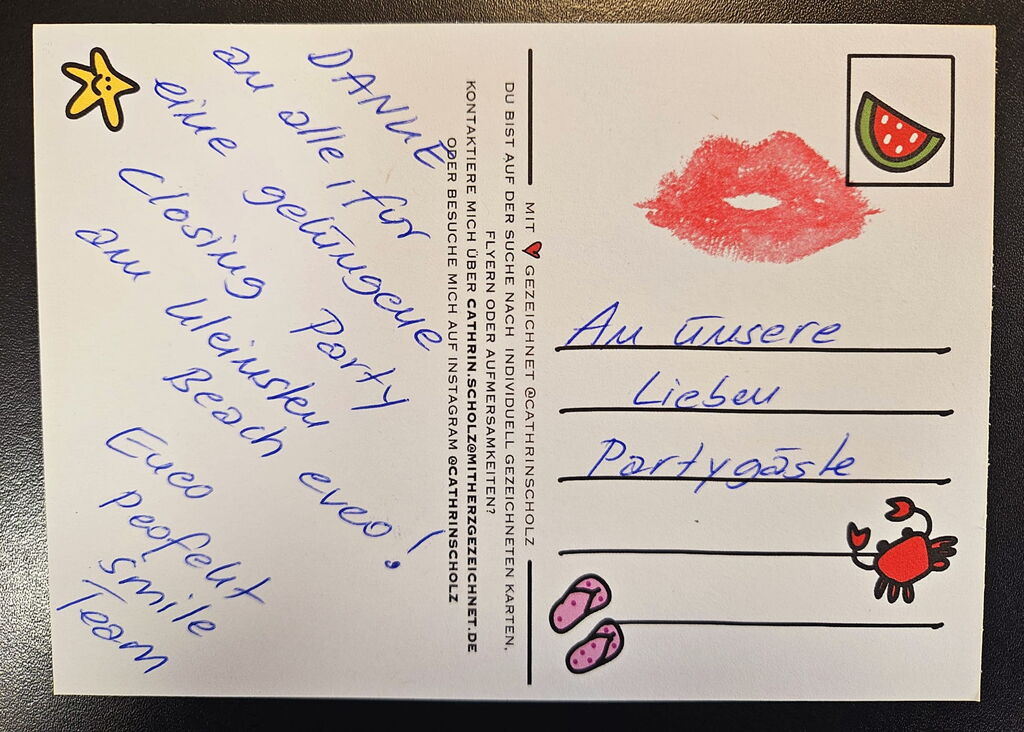 DANKE
an alle, für
eine gelungene
Closing Party
am kleinsten
Beach ever!
Euer
perfekt
smile
Team
MIT ❤ GEZEICHNET @CATHRINSCHOLZ
DU BIST AUF DER SUCHE NACH INDIVIDUELL GEZEICHNETEN KARTEN,
FLYERN ODER AUFMERSAMKEITEN?
KONTAKTIERE MICH ÜBER CATHRIN.SCHOLZ@MITHERZGEZEICHNET.DE
ODER BESUCHE MICH AUF INSTAGRAM @CATHRINSCHOLZ
An unsere
Lieben
Partygäste